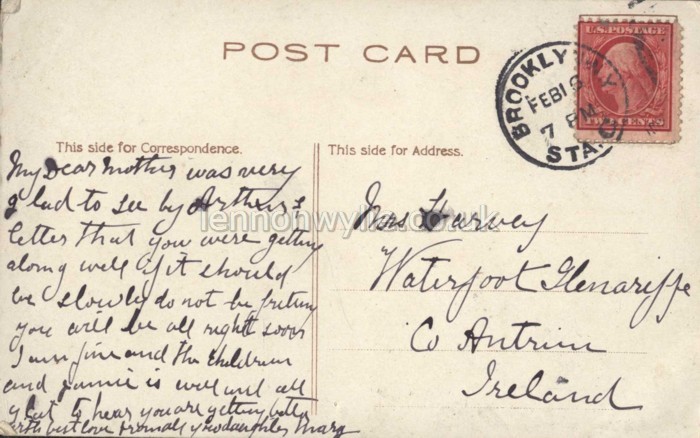 POST CARD
U.S. POSTAGE
TWO CENTS
BROOKLYN N.Y.
FEB 18
7 PM
STA.
This side for Correspondence.
My Dear Mother was very
glad to see by Arthurs
letter that you were getting
along well if it should
be slowly do not be freting
you will be all right soon
I am fine and the children
and Jamie is well and all
glad to hear you are getting better
with best love from all your daughter Marg
This side for Address.
Mrs Harvey
Waterfoot Glenariffe
Co Antrim
Ireland
lennonwylie.co.uk